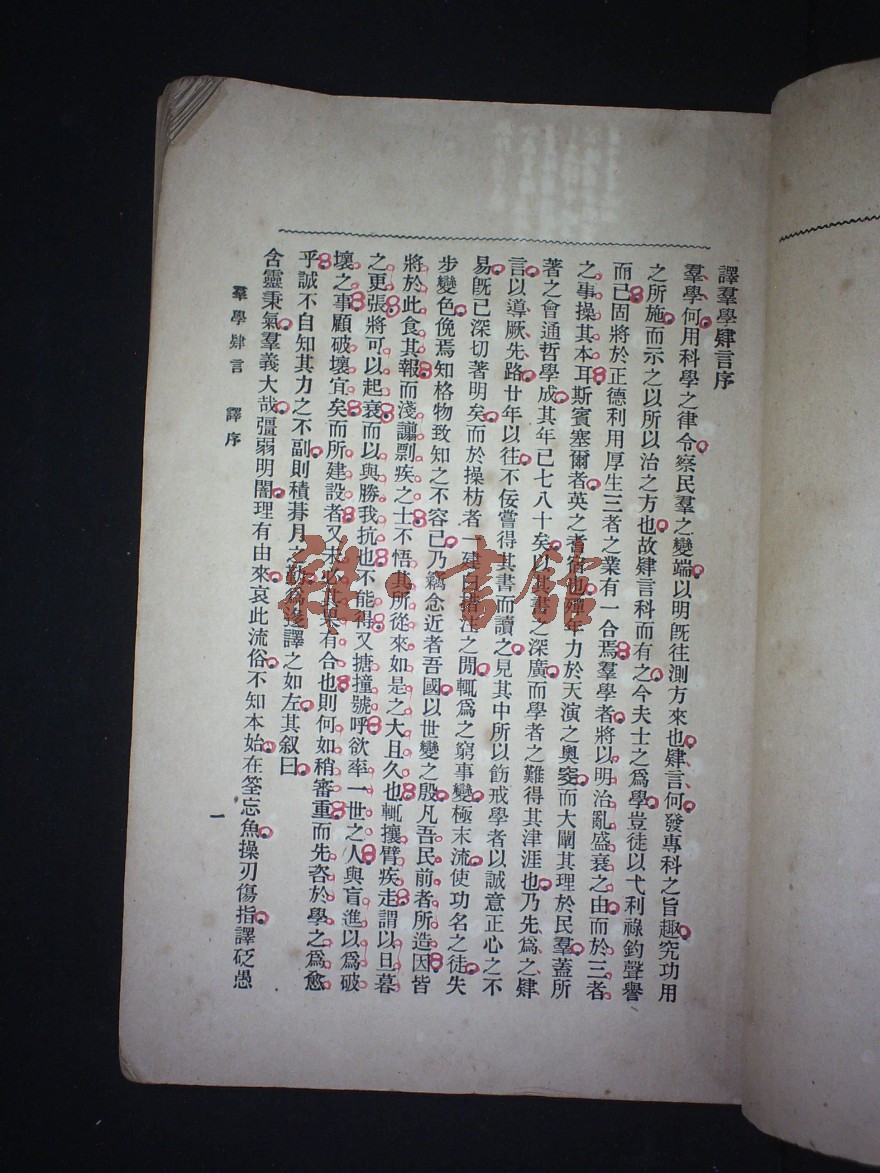 譯羣學肄言序
羣學何用科學之律令察民羣之變端以明旣往測方來也肄言何發專科之旨趣究功用
之所施而示之以所以治之方也故肄言科而有之今夫士之爲學豈徒以弋利祿釣聲譽
而已固將於正德利用厚生三者之業有一合焉羣學者將以明治亂盛衰之由而於三者
之事操其本耳斯賓塞爾者英之耆宿也殫年力於天演之奧窔而大闡其理於民羣蓋所
著之會通哲學成其年已七八十矣以其書之深廣而學者之難得其津涯也乃先爲之肄
言以導厥先路廿年以往不佞嘗得其書而讀之見其中所以飭戒學者以誠意正心之不
易旣已深切著明矣而於操枋者一建白措注之間輒爲之窮事變極末流使功名之徒失
步變色俛焉知格物致知之不容已乃竊念近者吾國以世變之殷凡吾民前者所造因皆
將於此食其報而淺譾剽疾之士不悟其所從來如是之大且久也輒攘臂疾走謂以旦暮
之更張將可以起衰而以與勝我抗也不能得又搪撞號呼欲率一世之人與盲進以爲破
壞之事顧破壞宜矣而所建設者又未必其果有合也則何如稍審重而先咨於學之爲愈
乎誠不自知其力之不副則積朞月之勤爲迻譯之如左其叙曰
含靈秉氣羣義大哉彊弱明闇理有由來哀此流俗不知本始在筌忘魚操刃傷指譯砭愚
羣學肄言 譯序
一
雜·書館